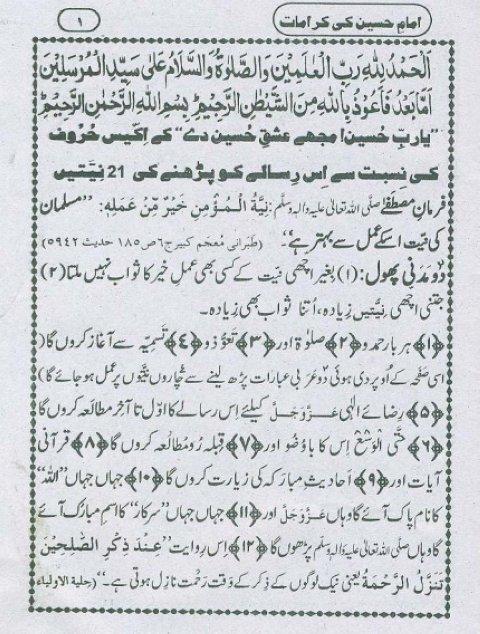 امامِ حسین کی کرامات
۱
اَلْحَمْدُ لِلّٰہِ رَبِّ الْعٰلَمِیْنَ وَالصَّلٰوۃُ وَالسَّلَامُ عَلٰی سَیِّدِ الْمُرْسَلِیْنَ
اَمَّا بَعْدُ فَاَعُوْذُ بِاللّٰہِ مِنَ الشَّیْطٰنِ الرَّجِیْمِ ؕ بِسْمِ اللّٰہِ الرَّحْمٰنِ الرَّحِیْمِ ؕ
”یا ربِّ حسین! مجھے عشقِ حسین دے“ کے اکیس حُروف
کی نسبت سے اِس رِسالے کو پڑھنے کی 21 نیّتیں
فرمانِ مصطَفٰے صلی اللہ تعالیٰ علیہ والہ وسلم : نِیَّۃُ الْمُؤْمِنِ خَیْرٌ مِّنْ عَمَلِہٖ: ”مسلمان
کی نیّت اسکے عمل سے بہتر ہے“۔ (طَبَرانی مُعجَم کبیر ج۶ ص۱۸۵ حدیث ۵۹۴۲)
دو مَدَنی پھول: (۱) بغیر اچھی نیّت کے کسی بھی عملِ خیر کا ثواب نہیں ملتا (۲)
جتنی اچھی نیّتیں زیادہ، اُتنا ثواب بھی زیادہ۔
﴿۱﴾ ہر بار حمد و ﴿۲﴾ صلوٰۃ اور ﴿۳﴾ تعوُّذ و ﴿۴﴾ تَسمِیہ سے آغاز کروں گا (
اسی صَفْحہ کے اُوپر دی ہوئی دو عَرَبی عبارات پڑھ لینے سے چاروں نیّتوں پر عمل ہو جائے گا)
﴿۵﴾ رِضائے الٰہی عَزَّوَجَلَّ کیلئے اِس رسالے کا اوّل تا آخِر مطالَعہ کروں گا
﴿۶﴾ حَتَّی الْوَسْعِ اِس کا باوُضُو اور ﴿۷﴾ قِبلہ رُو مُطالَعہ کروں گا ﴿۸﴾ قرآنی
آیات اور ﴿۹﴾ اَحادیثِ مبارَکہ کی زِیارت کروں گا ﴿۱۰﴾ جہاں جہاں ”اللہ“
کا نامِ پاک آئے گا وہاں عَزَّوَجَلَّ اور ﴿۱۱﴾ جہاں جہاں ”سرکار“ کا اسمِ مبارَک آئے
گا وہاں صلی اللہ تعالیٰ علیہ والہ وسلم پڑھوں گا ﴿۱۲﴾ اِس روایت ”عِنْدَ ذِکْرِ الصّٰلِحِیْنَ
تَنَزَّلُ الرَّحْمَۃُ یعنی نیک لوگوں کے ذِکر کے وَقت رَحْمت نازِل ہوتی ہے۔“ (حلیۃ الاولیاء